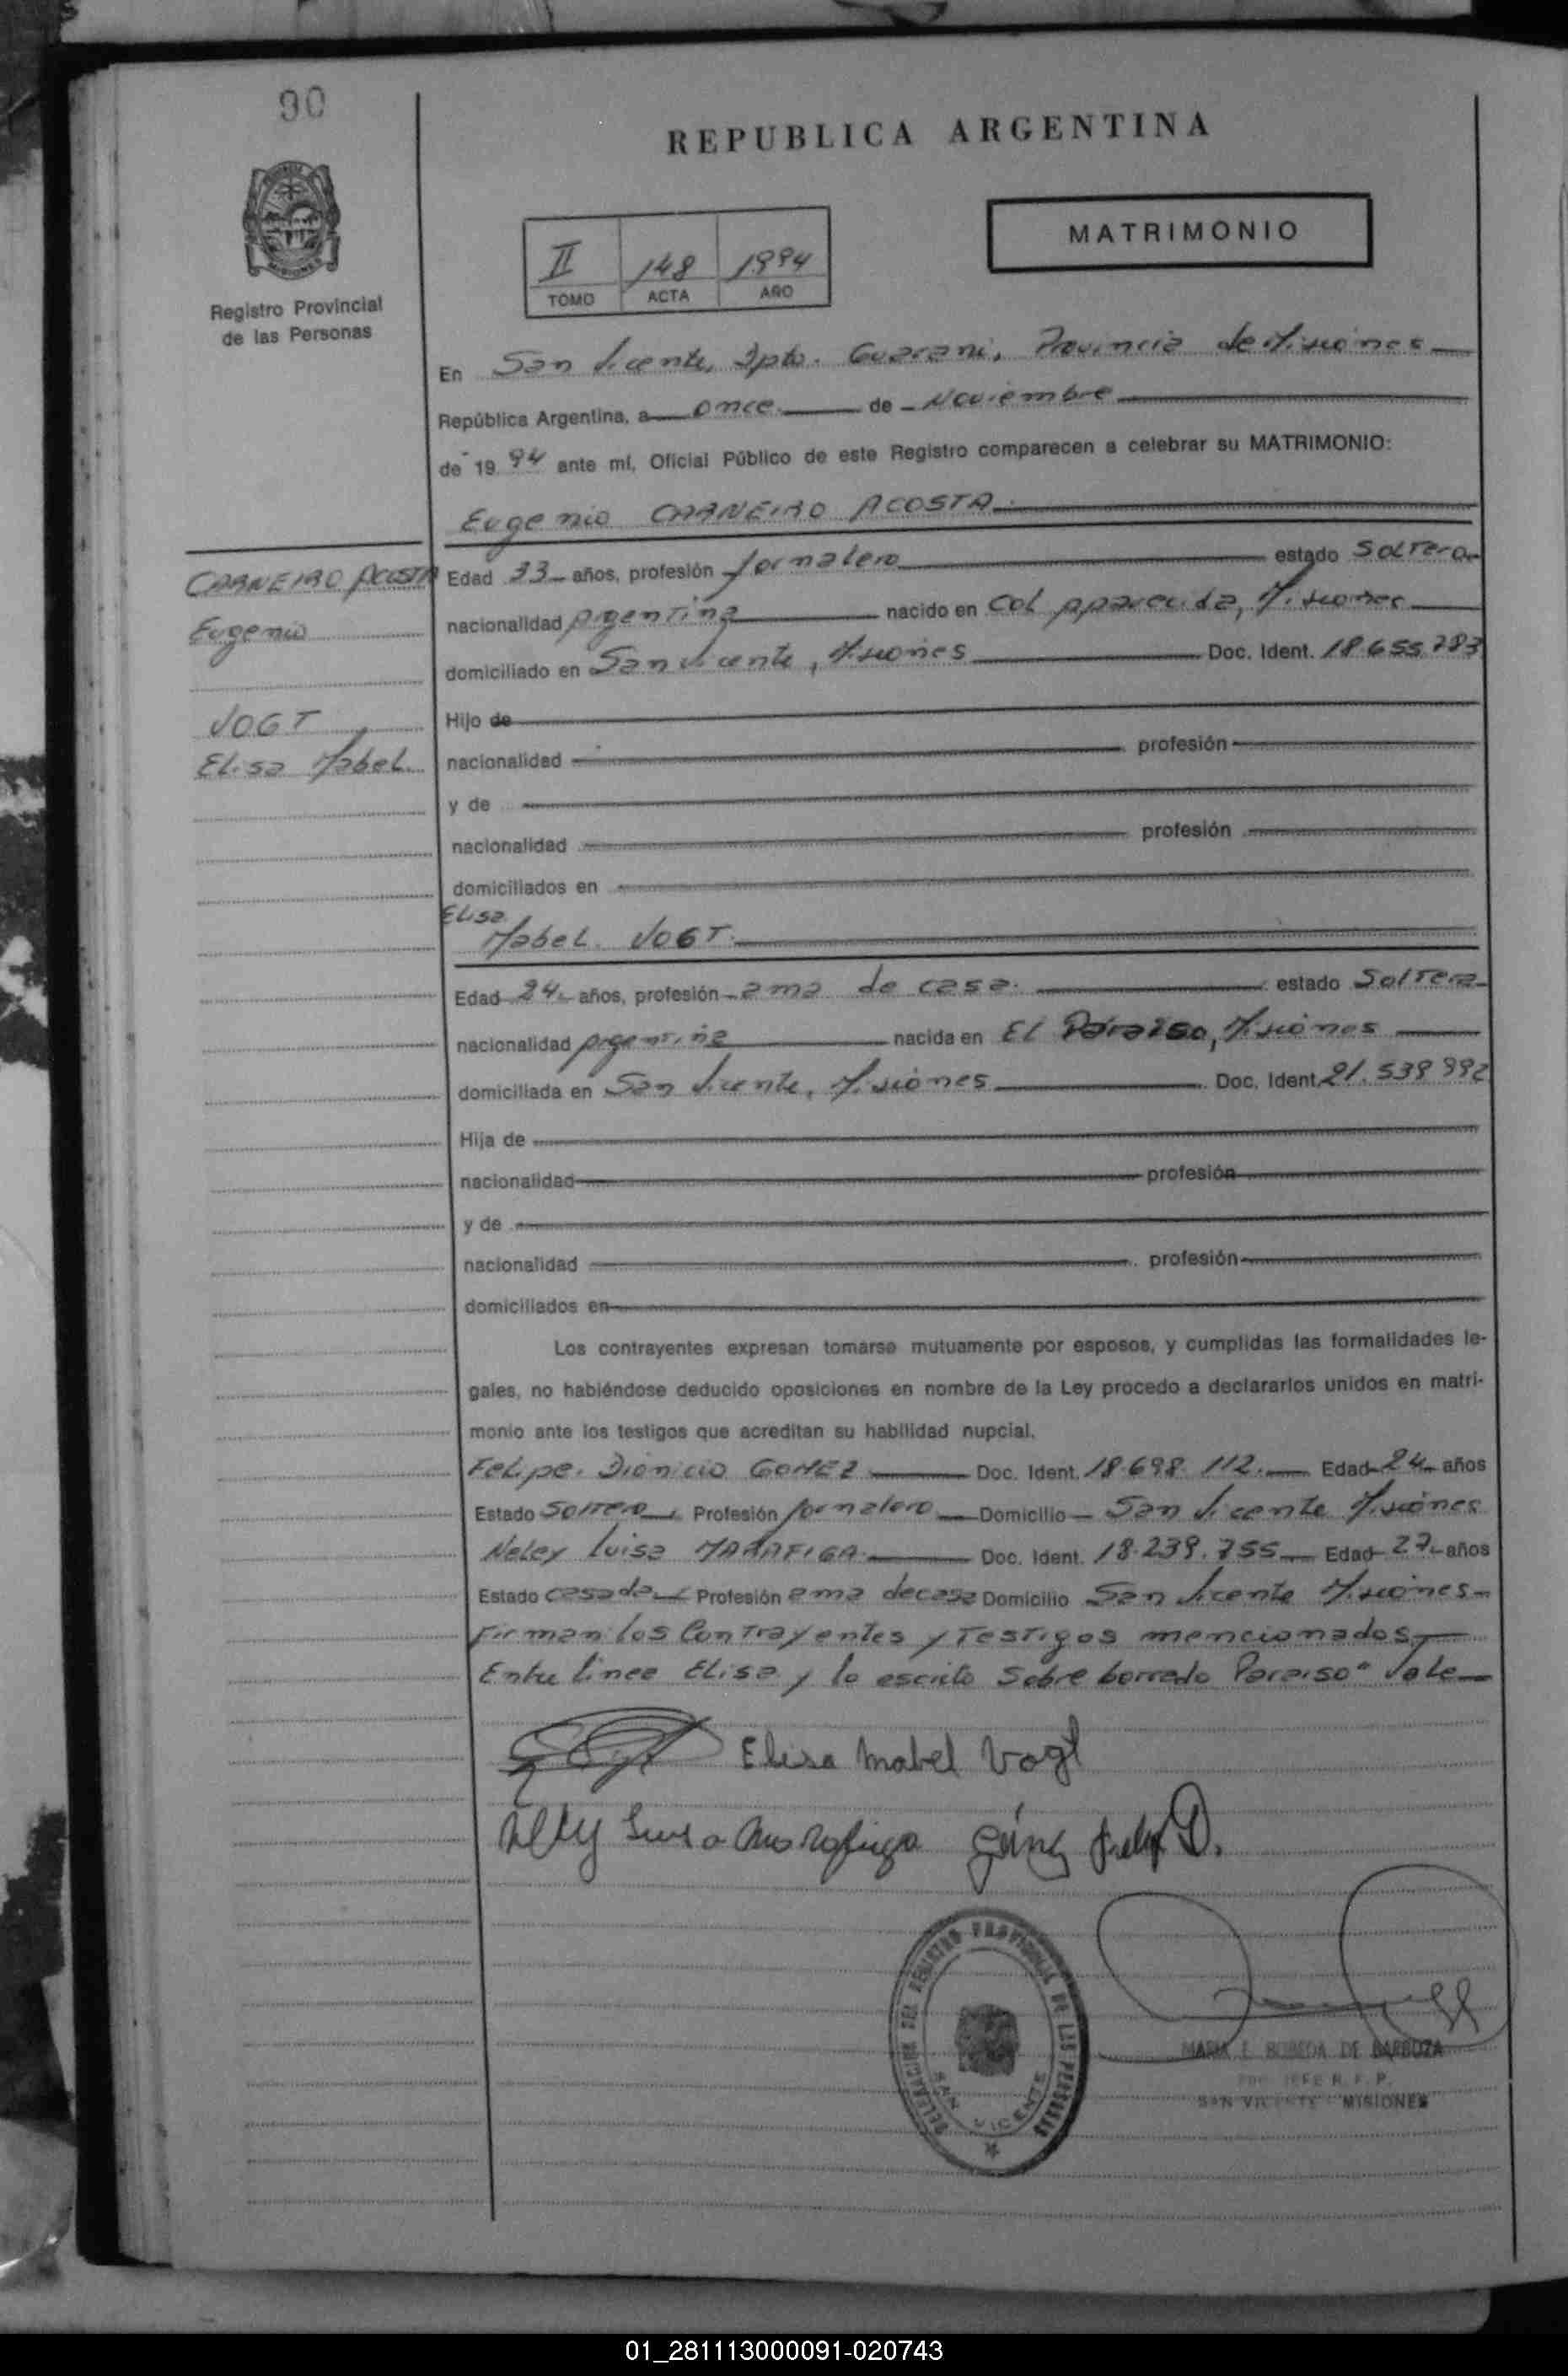 90
REPUBLICA ARGENTINA
MATRIMONIO
II 148 1994
TOMO ACTA AÑO
Registro Provincial
de las Personas
En San Vicente, Dpto. Guarani, Provincia de Misiones
República Argentina, a once de Noviembre
de 19 94 ante mí, Oficial Público de este Registro comparecen a celebrar su MATRIMONIO:
Eugenio CARNEIRO ACOSTA
CARNEIRO ACOSTA
Eugenio
VOGT
Elisa Mabel.
Edad 33 años, profesión Jornalero estado Soltero
nacionalidad Argentina nacido en Col Aparecida, Misiones
domiciliado en San Vicente, Misiones Doc. Ident. 18.655.783
Hijo de
nacionalidad profesión
y de
nacionalidad profesión
domiciliados en
Elisa
Mabel VOGT.
Edad 24 años, profesión ama de casa. estado Soltera
nacionalidad Argentina nacida en El Paraiso, Misiones
domiciliada en San Vicente, Misiones Doc. Ident. 21.539 992
Hija de
nacionalidad profesión
y de
nacionalidad profesión
domiciliados en
Los contrayentes expresan tomarse mutuamente por esposos, y cumplidas las formalidades le-
gales, no habiéndose deducido oposiciones en nombre de la Ley procedo a declararlos unidos en matri-
monio ante los testigos que acreditan su habilidad nupcial.
Felipe Dionicio GOMEZ Doc. Ident. 18.698.112. Edad 24 años
Estado Soltero Profesión Jornalero Domicilio San Vicente Misiones
Neley Luisa MARAFIGA Doc. Ident. 18.239.755 Edad 27 años
Estado casada Profesión ama de casa Domicilio San Vicente Misiones
Firman los Contrayentes y Testigos mencionados,
Entre linea Elisa y lo escrito Sobre borrado Paraiso" Vale
Elisa Mabel Vogt
Nelly Luisa Marafiga Gómez Felip D.
DELEGACION DEL REGISTRO PROVINCIAL DE LAS PERSONAS
SAN VICENTE
MARIA E. BOBEDA DE BARBOZA
JEFE R. P. P.
SAN VICENTE - MISIONES
01_281113000091-020743